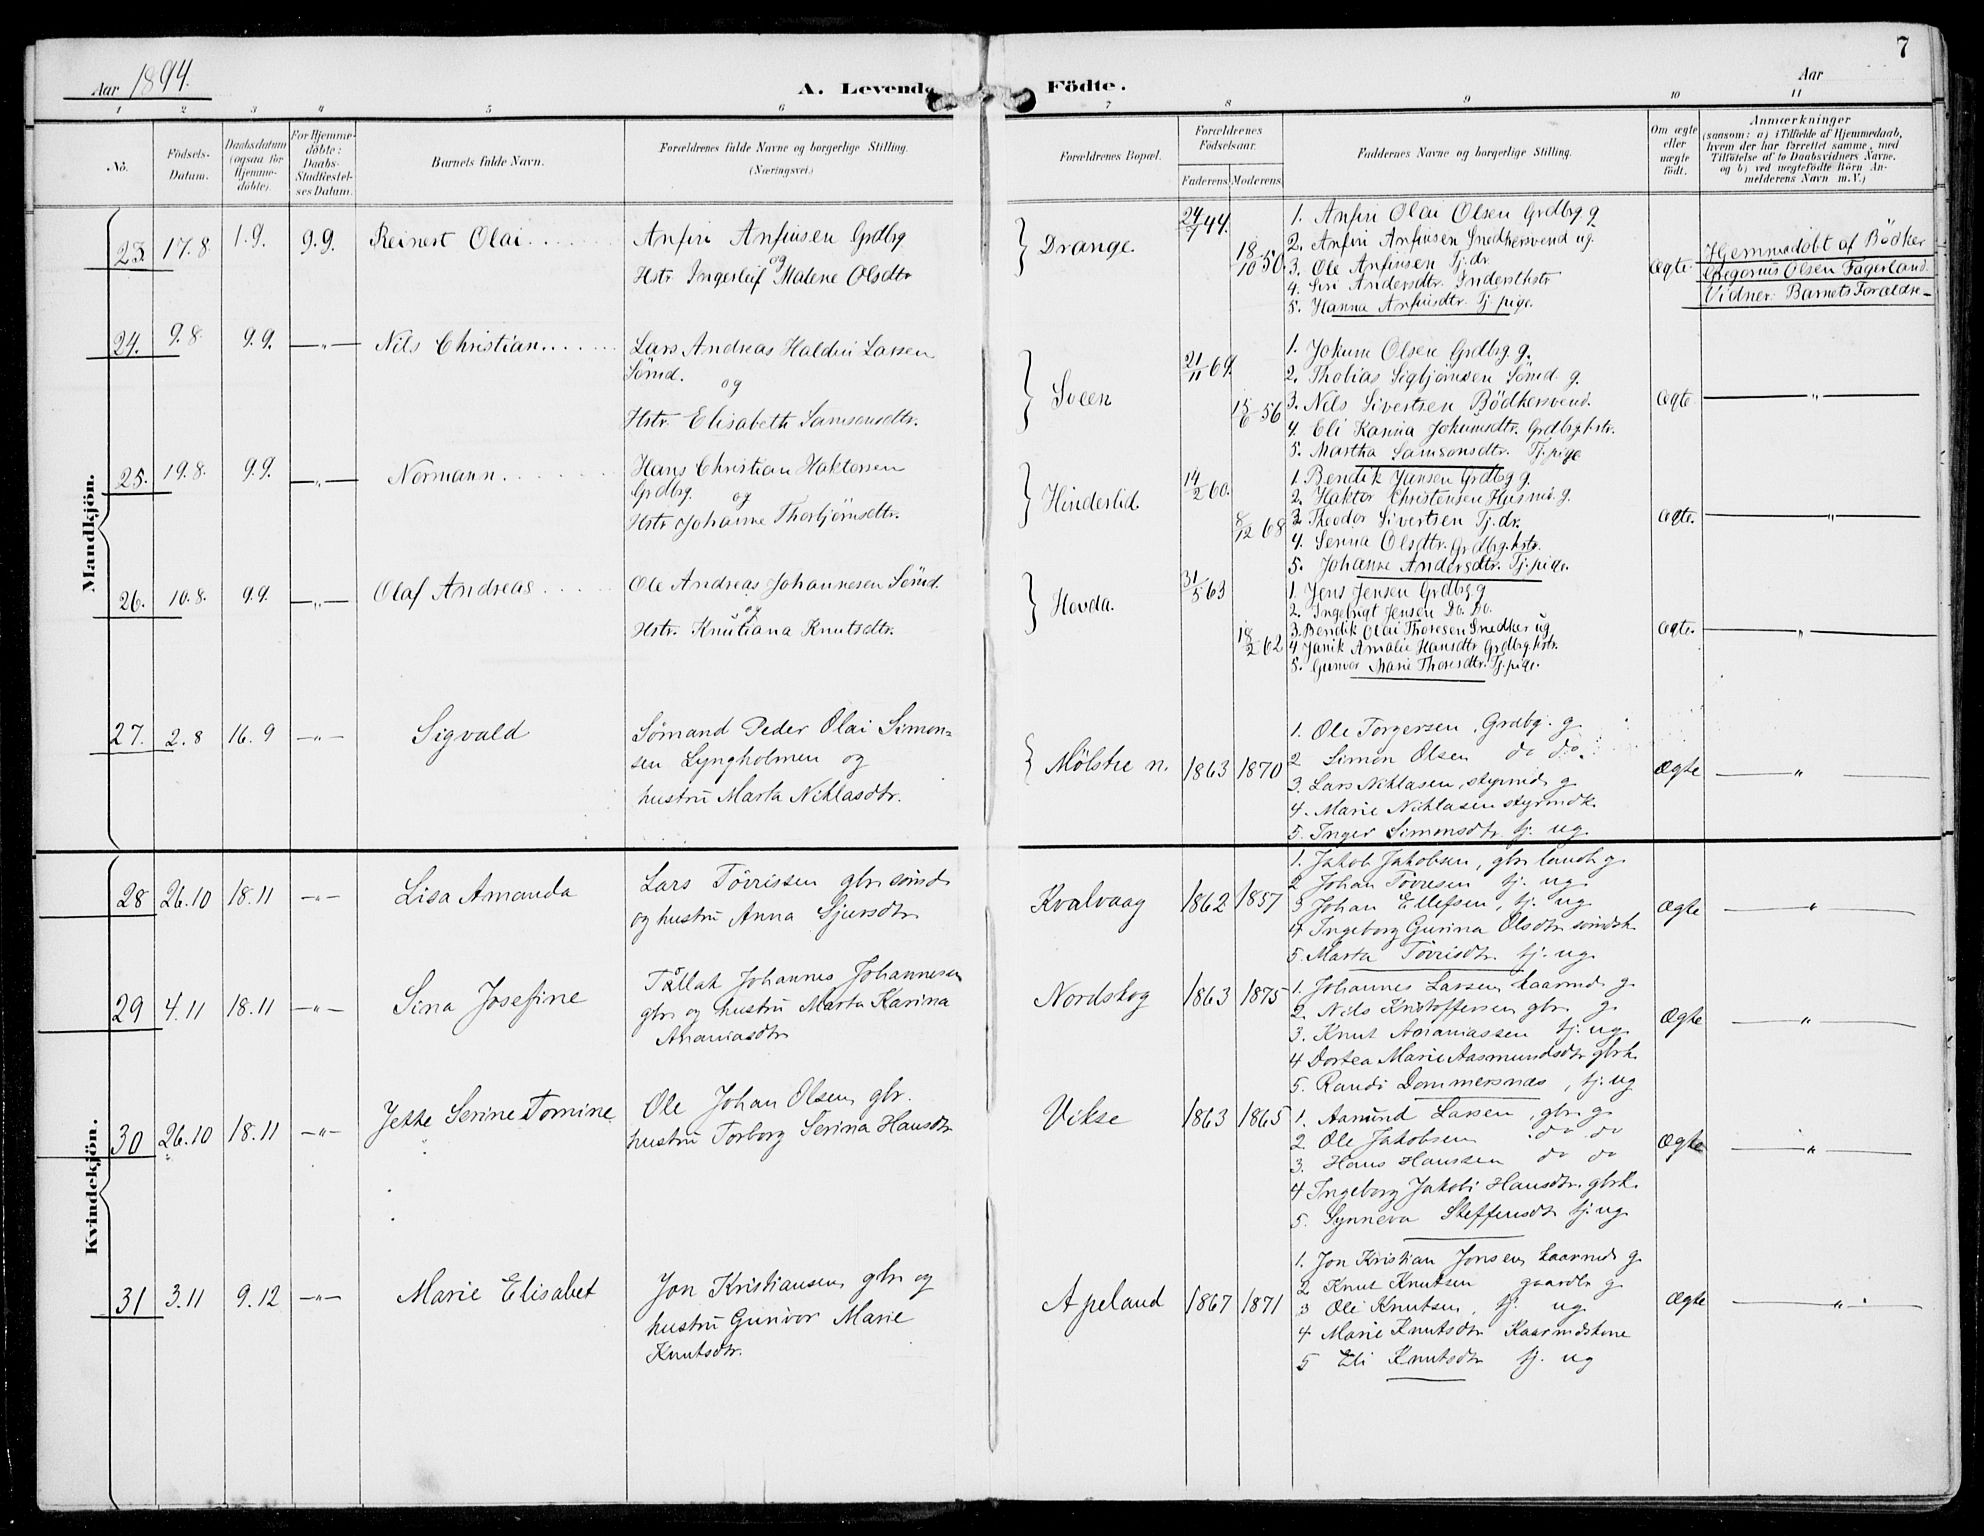 7
Aar 1894. A. Levende Födte. Aar
1 2 3 4 5 6 7 8 9 10 11
No.
Födsels-Datum.
Daabsdatum (ogsaa for Hjemmedöbte).
For Hjemmedöbte: Daabs-Stadfæstelses Datum.
Barnets fulde Navn.
Forældrenes fulde Navne og borgerlige Stilling.
(Næringsvei.)
Forældrenes Bopæl.
Forældrenes Födselsaar.
Faderens. Moderens.
Faddernes Navne og borgerlige Stilling.
Om ægte eller uægte födt.
Anmærkninger
(saasom: a) i Tilfælde af Hjemmedaab,
hvem der har forrettet samme, med
Tilföielse af to Daabsvidners Navne.
og b) ved uægtefödte Börn An-
melderens Navn m. V.)
Mandkjön.
23. 17.8 1.9. 9.9. Reinert Olai
Anfin Anfinsen Grdbrg
og
Hstr Ingerleif Malene Olsdtr
Drange. 24/7 44. 18/10 50.
1. Anfin Olai Olsen Grdbrg g
2. Anfin Anfinsen Snedkersvend ug.
3. Ole Anfinsen Tj.dr.
4. Siri Andersdtr. Inderstkstr
5. Hanna Anfinsdtr. Tj.pige.
Ægte.
Hjemmedöbt af Bödker
Gregorius Olsen Fagerland.
Vidner: Barnets Forældre
24. 9.8. 9.9. —„— Nils Christian
Lars Andreas Haldin Larsen
Sömd.
og
Hstr. Elisabeth Samsonsdtr.
Sveen 21/11 69. 15/6 56
1. Jokum Olsen Grdbrg g.
2. Tholias Sigbjörnsen Sömd. g.
3. Nils Sivertsen Bödkersvend.
4. Eli Karina Jokumsdtr. Grdbrgkstr.
5. Martha Samsonsdtr. Tj.pige
Ægte —„—
25. 19.8. 9.9. —„— Normann
Hans Christian Haktorsen
Grdbrg.
og
Hstr Johanne Thorbjörnsdtr.
Hinderlid. 14/2 60. 8/12 68
1. Bendik Jansen Grdbrg g.
2. Haktor Christensen Husmd. g.
3. Theodor Sivertsen Tj.dr.
4. Senna Olsdtr. Grdbrg.kstr.
5. Johanne Andersdtr. Tj.pige.
Ægte. —„—
26. 10.8. 9.9. —„— Olaf Andreas
Ole Andreas Johannesen Sömd.
og
Hstr. Knutiana Knutsdtr.
Hovda. 31/5 63 18/2 62
1. Jens Jensen Grdbrg g
2. Ingebrigt Jensen Do. Do.
3. Bendik Olai Thoresen Snedker ug
4 Janik Amalie Hansdtr Grdbrgkstr.
5. Gunvor Marie Thoresdtr. Tj.pige.
Ægte. —„—
27. 2.8 16.9 —„— Sigvald
Sömand Peder Olai Simon=
sen Lyngholmen og
hustru Marta Niklasdtr.
Mölstre n. 1863 1870
1. Ole Torgersen, Grdbg. g
2 Simon Olsen do do.
3. Lars Niklasen, styrmd g
4. Marie Niklasen styrmdk.
5. Inger Simonsdtr tj. ug
Ægte —„—
Kvindekjön.
28 26.10 18.11 —„— Lisa Amanda
Lars Tövrissen gbr sömd
og hustru Anna Sjursdtr
Kvalvaag 1862 1857
1. Jakob Jakobsen, gbr landh g
2 Johan Tövresen tj. ug
3 Johan Ellefsen, tj. ug
4 Ingeborg Gurina Olsdtr sömdsk
5. Marta Tövrisdtr. tj. ug
Ægte —„—
29 4.11 18.11 —„— Sina Josefine
Tållak Johannes Johannesen
gbr og hustru Marta Karina
Ananiasdtr
Nordskog 1863 1875
1. Johannes Larsen kaarmd g
2. Nils Kristoffersen gbr g
3. Knut Ananiassen tj. ug
4 Dortea Marie Aasmundsdtr gbrk.
5. Randi Dommersnæs, tj. ug
Ægte —„—
30 26.10 18.11 —„— Jette Serine Tomine
Ole Johan Olsen gbr.
hustru Torborg Serina Hansdtr
Vikse 1863 1865
1. Aamund Larsen, gbr g
2 Ole Jakobsen do do
3. Hans Hanssen do do
4 Ingeborg Jakobi Hansdtr. gbrk.
5. Synneva Steffensdtr tj. ug
Ægte —„—
31 3.11 9.12 —„— Marie Elisabet
Jon Kristiansen gbr og
hustru Gunvor Marie
Knutsdtr.
Apeland 1867 1871
1. Jon Kristian Jonsen kaarmd g.
2 Knut Knutsen gaardbr g
3 Ole Knutsen, tj. ug
4 Marie Knutsdtr Kaarmdskone
5 Eli Knutsdtr tj. ug
Ægte —„—